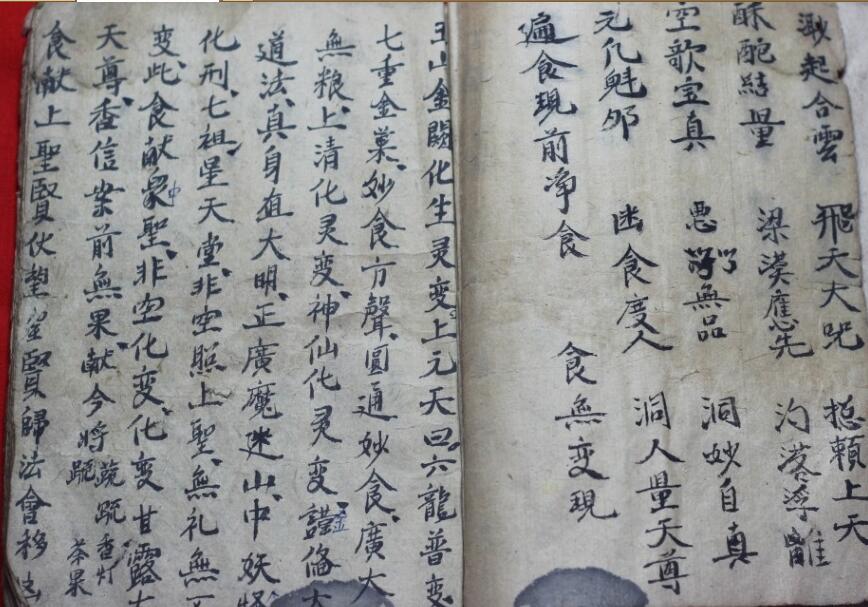 渺起合雲 飛天大咒 捴頼上天
酥酡結量 梁漠應先 汋落浮離
空歌宝真 悪 無品 洞妙自真
元仉魁邜 迷食度人 洞人量天尊
遍食現前净食 食無变現
玉山金闕化生灵变上元天曰六龍普变
七重金菓妙食方聲圓通妙食廣大
無粮上清化灵变神仙化灵变 偹大
道法真身值大明正廣魔迷山中妖怪
化刑七祖星天堂非空照上聖無礼無
变此食献眾聖非空化变化变甘露
天尊香信業前無果献今将蔬 香灯茶果
食献上聖賢伏望 賢歸法會移